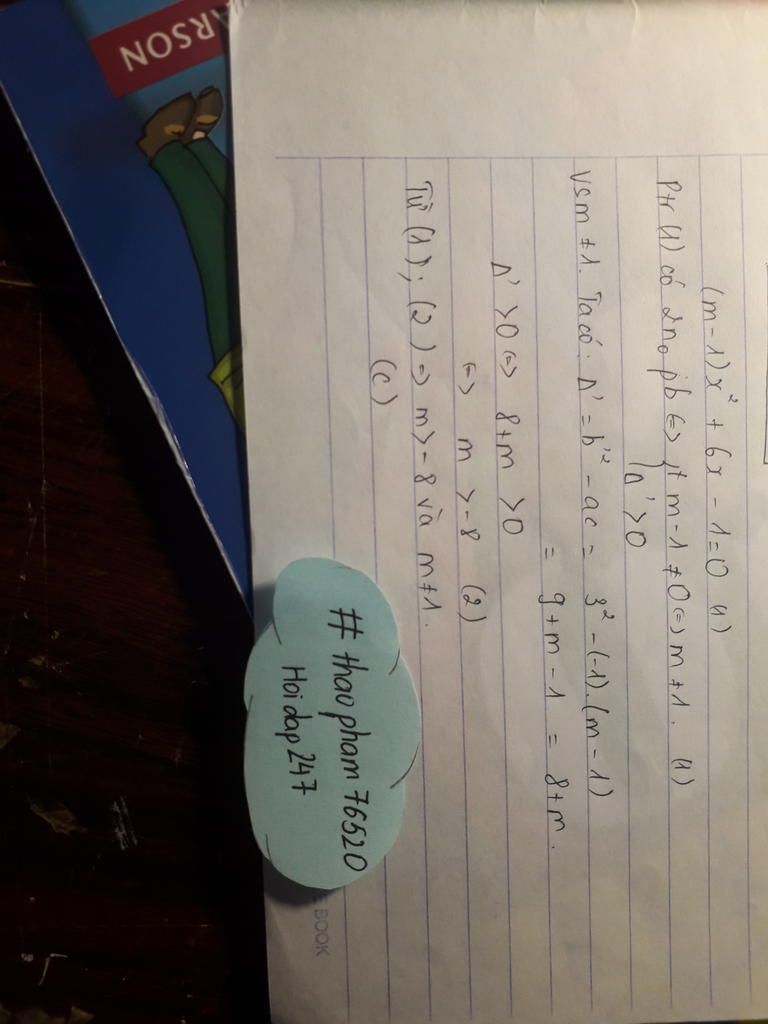 (m-1)x² + 6x - 1 = 0 (1)
Ptr (1) có 2n₀ pb <=> { m-1 ≠ 0 <=> m ≠ 1. (1)
{ Δ' > 0
Với m ≠ 1. Ta có: Δ' = b'² - ac = 3² - (-1).(m-1)
= 9 + m - 1 = 8 + m.
Δ' > 0 <=> 8 + m > 0
<=> m > -8 (2)
Từ (1); (2) => m > -8 và m ≠ 1.
(C)
# thao pham 76520
Hoi dap 247
ARSON
BOOK